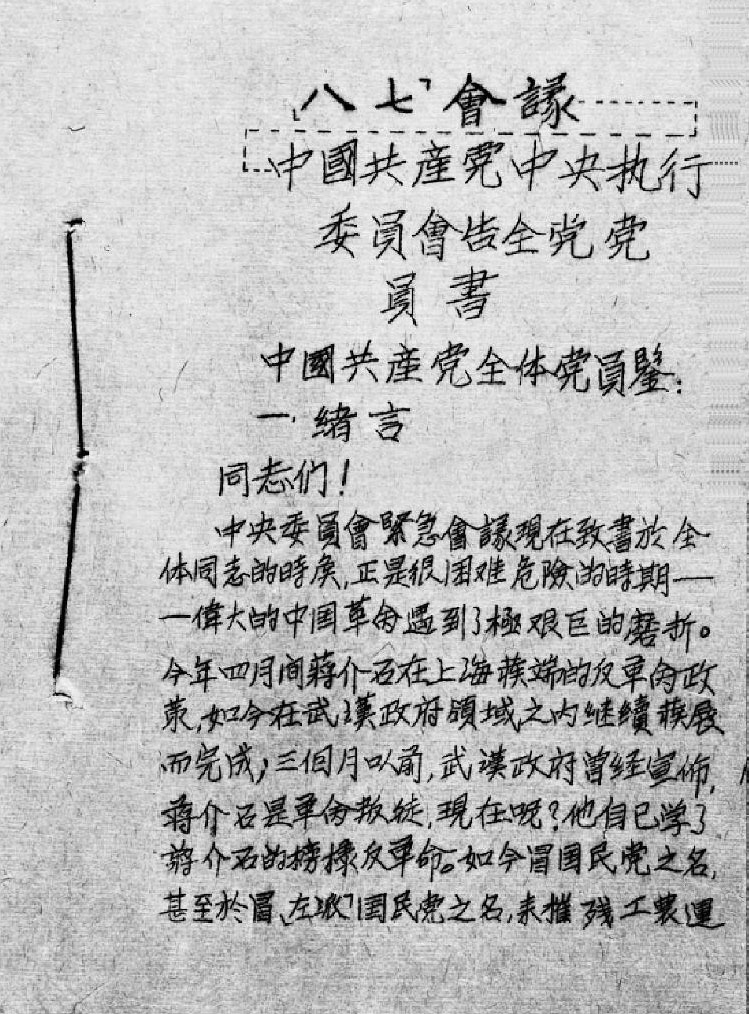 「八七」會議
中國共產党中央执行
委員會告全党党
員書
中國共產党全体党員鑒：
一．緒言
同志们！
中央委員會緊急會議現在致書於全
体同志的時候，正是很困难危險的時期——
一偉大的中国革命遇到了極艰巨的磨折。
今年四月间蒋介石在上海發端的反革命政
策，如今在武漢政府領域之内继續發展
而完成，三個月以前，武漢政府曾经宣佈，
蒋介石是革命叛徒，現在呢？他自己学了
蒋介石的榜樣反革命。如今冒国民党之名，
甚至於冒「左派」国民党之名，来摧残工農運